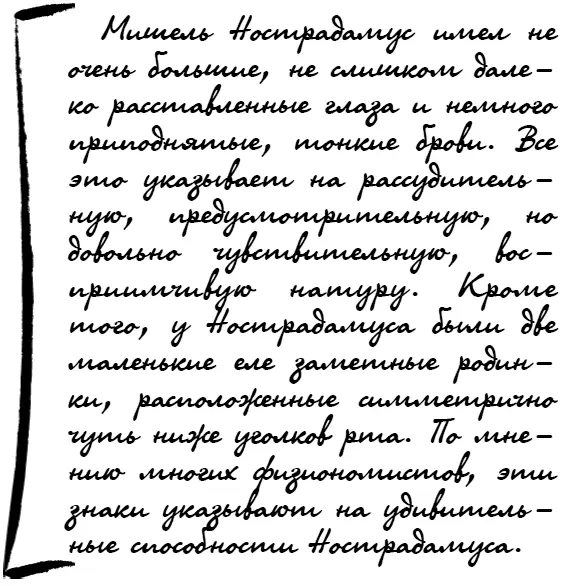 Мишель Нострадамус имел не
очень большие, не слишком дале-
ко расставленные глаза и немного
приподнятые, тонкие брови. Все
это указывает на рассудитель-
ную, предусмотрительную, но
довольно чувствительную, вос-
приимчивую натуру. Кроме
того, у Нострадамуса были две
маленькие еле заметные родин-
ки, расположенные симметрично
чуть ниже уголков рта. По мне-
нию многих физиономистов, эти
знаки указывают на удивитель-
ные способности Нострадамуса.